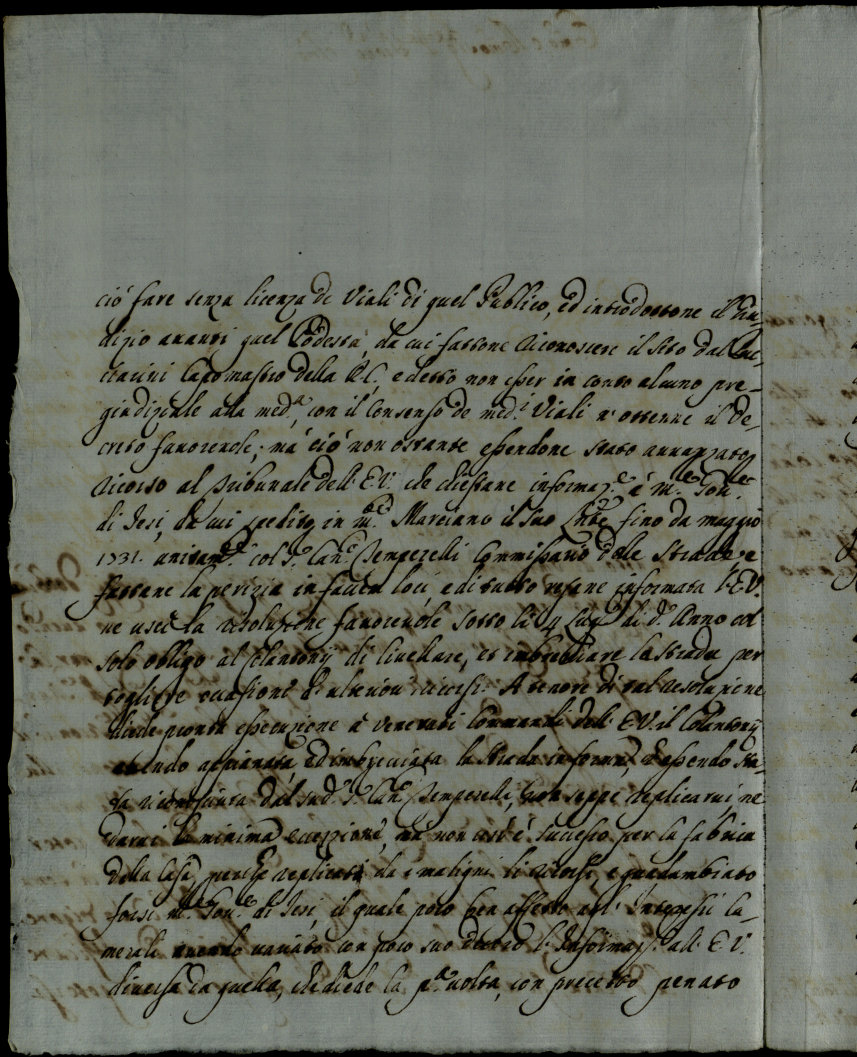 ciò fare senza licenza de Viali di quel Publico, ed introdottone il Giu-
dizio avanti quel Podestà, da cui fattone riconoscere il sito dal
Capomastro della R. C., e detto non esser in conto alcuno pre-
giudiziale alla med.ª, con il Consenso de med.i Viali n'ottenne il De-
creto favorevole; mà ciò non ostante essendone stato avvanzato
ricorso al Tribunale dell'E.V. che chiestane informaz.e à m.r Gov.re
di Jesi, da cui spedito in m.te Marciano il suo fino da maggio
1731. unitam.te col S.r Can.e Pengerelli Commissario delle Strade, e
fattane la perizia in faciem loci, e di tutto resane informata l'E.V.
ne uscì la risoluzione favorevole sotto li 4 Lug.o di d.º Anno col
solo obligo al Colantonij di livellare, et imbrecciare la strada per
togliere occasione d'ulteriori ricorsi. A tenore di tal resoluzione
diede pronta essecuzione à venerati Commandi dell'E.V. il Colantonij
avendo appianata, ed imbrecciata la strada in forma, ed essendo sta-
ta riconosciuta dal sud.º S.r Can.e Pengerelli, non seppe replicarvi, ne
darvi la minima eccezzione, ma non così è successo per la fabrica
della Casa, perche replicati da i maligni li ricorsi, e guadambiato
forsi m.r Gov.re di Jesi, il quale poco ben affetto agl'Interessi Ca-
merali avendo variato con poco suo decoro l'Informaz.e all'E.V.
diversa da quella, che diede la p.ª volta, con precetto penato